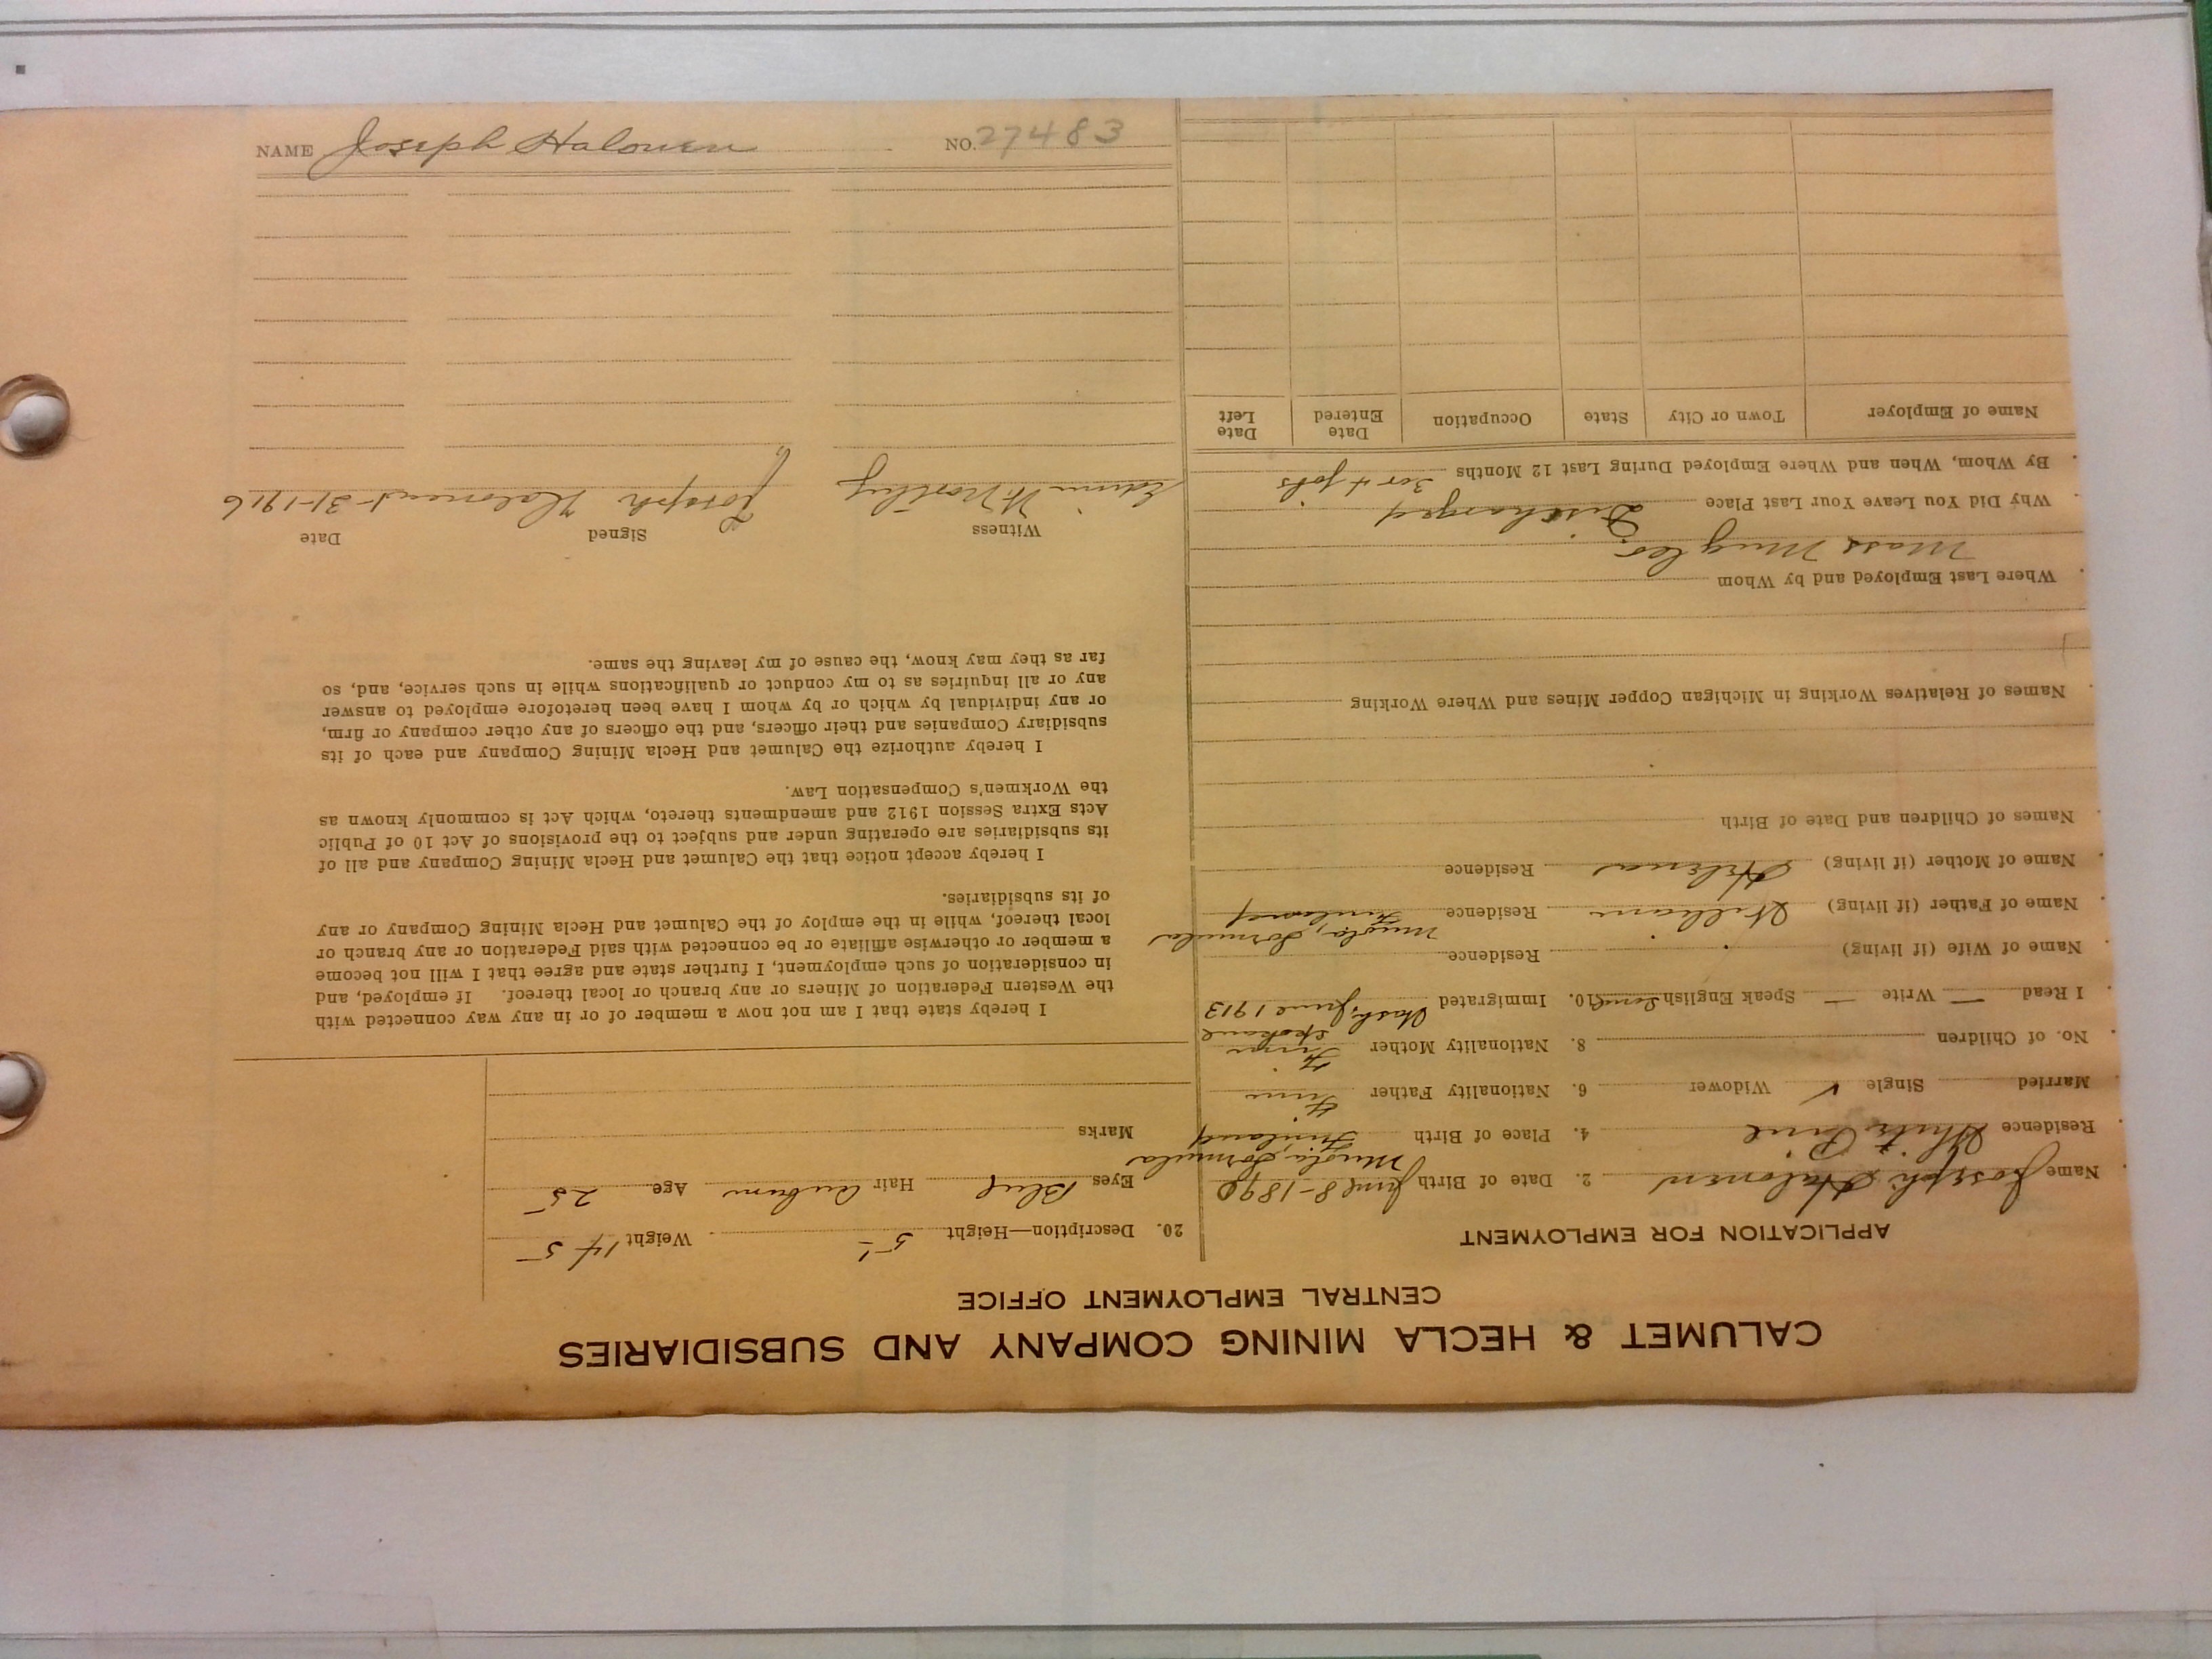 CALUMET & HECLA MINING COMPANY AND SUBSIDIARIES
CENTRAL EMPLOYMENT OFFICE
APPLICATION FOR EMPLOYMENT
Name Joseph Halonen 2. Date of Birth June 8-1890
Residence White Pine 4. Place of Birth Finland
Married Single ✓ Widower 6. Nationality Father Finn
No. of Children 8. Nationality Mother Finn
I Read — Write — Speak English 10. Immigrated Spokane Wash, June 1913
Name of Wife (if living) Residence
Name of Father (if living) William Residence Finland
Name of Mother (if living) Helena Residence
Names of Children and Date of Birth
Names of Relatives Working in Michigan Copper Mines and Where Working
Where Last Employed and by Whom
Mass
Why Did You Leave Your Last Place Discharged
By Whom, When and Where Employed During Last 12 Months 3 or 4 jobs
Name of Employer Town or City State Occupation Date Entered Date Left
20. Description—Height 5 Weight 145
Eyes Blue Hair Auburn Age 25
Marks
I hereby state that I am not now a member of or in any way connected with
the Western Federation of Miners or any branch or local thereof. If employed, and
in consideration of such employment, I further state and agree that I will not become
a member or otherwise affiliate or be connected with said Federation or any branch or
local thereof, while in the employ of the Calumet and Hecla Mining Company or any
of its subsidiaries.
I hereby accept notice that the Calumet and Hecla Mining Company and all of
its subsidiaries are operating under and subject to the provisions of Act 10 of Public
Acts Extra Session 1912 and amendments thereto, which Act is commonly known as
the Workmen's Compensation Law.
I hereby authorize the Calumet and Hecla Mining Company and each of its
subsidiary Companies and their officers, and the officers of any other company or firm,
or any individual by which or by whom I have been heretofore employed to answer
any or all inquiries as to my conduct or qualifications while in such service, and, so
far as they may know, the cause of my leaving the same.
Witness Signed Date
Joseph Halonen 1-31-1916
NAME Joseph Halonen NO. 27483